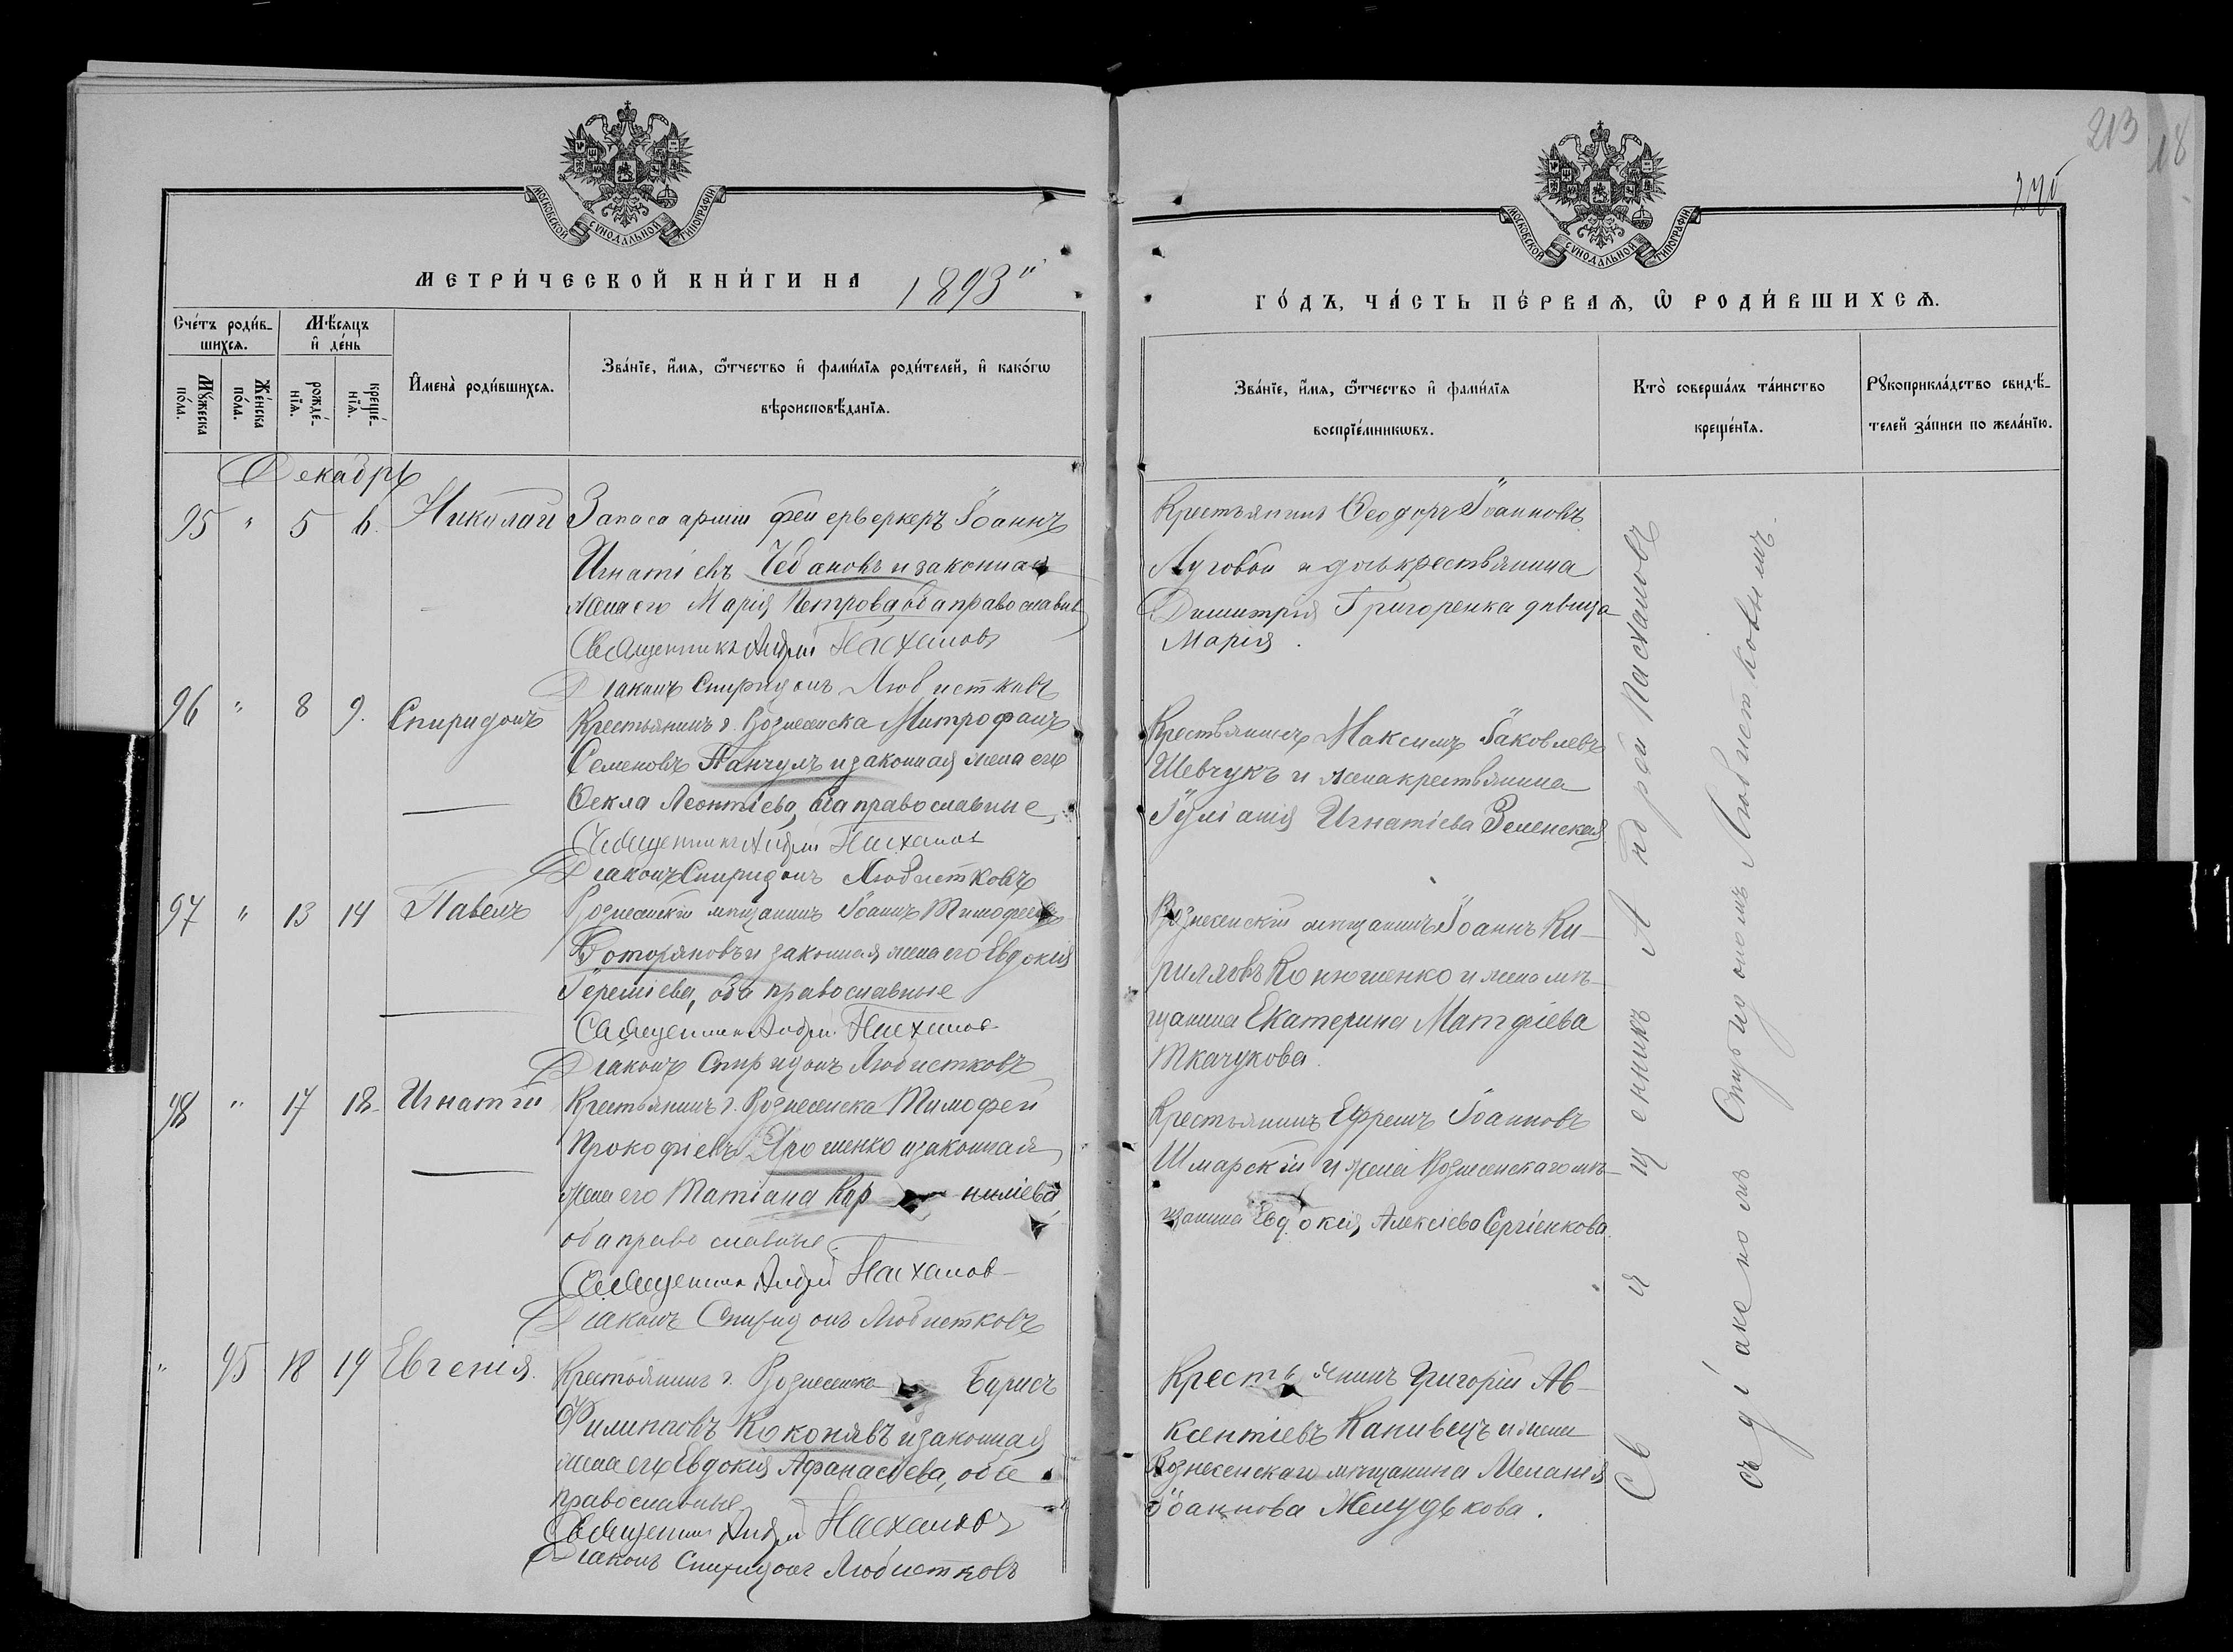 213
18
МОСКОВСКОЙ СѴНОДАЛЬНОЙ ТИПОГРАФІИ
МОСКОВСКОЙ СѴНОДАЛЬНОЙ ТИПОГРАФІИ
МЕТРИ́ЧЕСКОЙ КНИ́ГИ НА 1893
ГО́ДЪ, ЧА́СТЬ ПЕ́РВАЯ, Ѡ РОДИ́ВШИХСЯ.
Сче́тъ роди́в-
шихся.
Мѣ́сяцъ
и҆ де́нь
Мꙋ́жеска
по́ла.
Же́нска
по́ла.
рожде́-
нїя.
креще́-
нїя.
И҆мена̀ роди́вшихся.
Зва́нїе, и҆́мя, ѻ҆́тчество и҆ фами́лїя роди́телей, и҆ како́гѡ
вѣроисповѣ́данїя.
Зва́нїе, и҆́мя, ѻ҆́тчество и҆ фами́лїя
воспрїе́мникѡвъ.
Кто̀ соверша́лъ та́инство
креще́нїя.
Рꙋкоприкла́дство свидѣ́-
телей за́писи по жела́нїю.
Декабрь
95 " 5 6. Николай Запаса арміи фейерверкеръ Іоаннъ
Игнатіевъ Чебановъ и законная
жена его Марія Петрова, оба православные
Священникъ Андрей Пасхаловъ
Діаконъ Спиридонъ Любистковъ
Крестьянинъ Ѳеодоръ Іоанновъ
Луговой и дочь крестьянина
Димитрія Григоренка дѣвица
Марія.
96 " 8 9. Спиридонъ Крестьянинъ г. Вознесенска Митрофанъ
Семеновъ Панчулъ и законная жена его
Ѳекла Леонтіева, оба православные
Священникъ Андрей Пасхаловъ
Діаконъ Спиридонъ Любистковъ
Крестьянинъ Максимъ Іаковлевъ
Шевчукъ и жена крестьянина
Іуліанія Игнатіева Зеленская
97 " 13 14 Павелъ Вознесенскій мѣщанинъ Іоаннъ Тимофеевъ
Боторяновъ и законная жена его Евдокія
Іереміева, оба православные
Священникъ Андрей Пасхаловъ
Діаконъ Спиридонъ Любистковъ
Вознесенскій мѣщанинъ Іоаннъ Ки-
рилловъ Конюшенко и жена мѣ-
щанина Екатерина Матфіева
Ткачукова.
98 " 17 18. Игнатій Крестьянинъ г. Вознесенска Тимофей
Прокофіевъ Ярошенко и законная
жена его Татіана Корниліева
оба православные.
Священникъ Андрей Пасхаловъ
Діаконъ Спиридонъ Любистковъ
Крестьянинъ Ефремъ Іоанновъ
Шмарскій и жена Вознесенскаго мѣ-
щанина Евдокія Алексіева Сергіенкова.
" 95 18 19 Евгенія. Крестьянинъ г. Вознесенска Борисъ
Филипповъ Коконявъ и законная
жена его Евдокія Афанасіева, обе
православные
Священникъ Андрей Пасхаловъ
Діаконъ Спиридонъ Любистковъ
Крестьянинъ Григорій Ав-
ксентіевъ Канивецъ и жена
Вознесенскаго мѣщанина Меланія
Іоаннова Желудькова.
Священникъ Андрей Пасхаловъ
съ діакономъ Спиридономъ Любистковымъ.